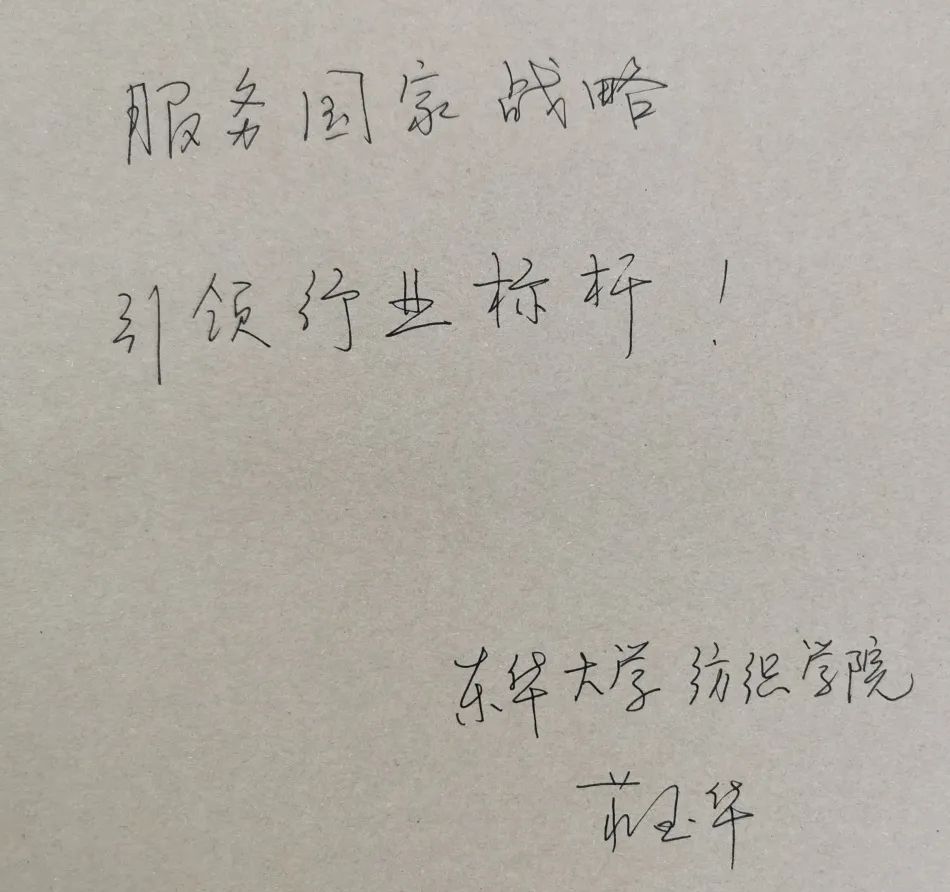 服务国家战略
引领行业标杆！
东华大学纺织学院
莊玉华